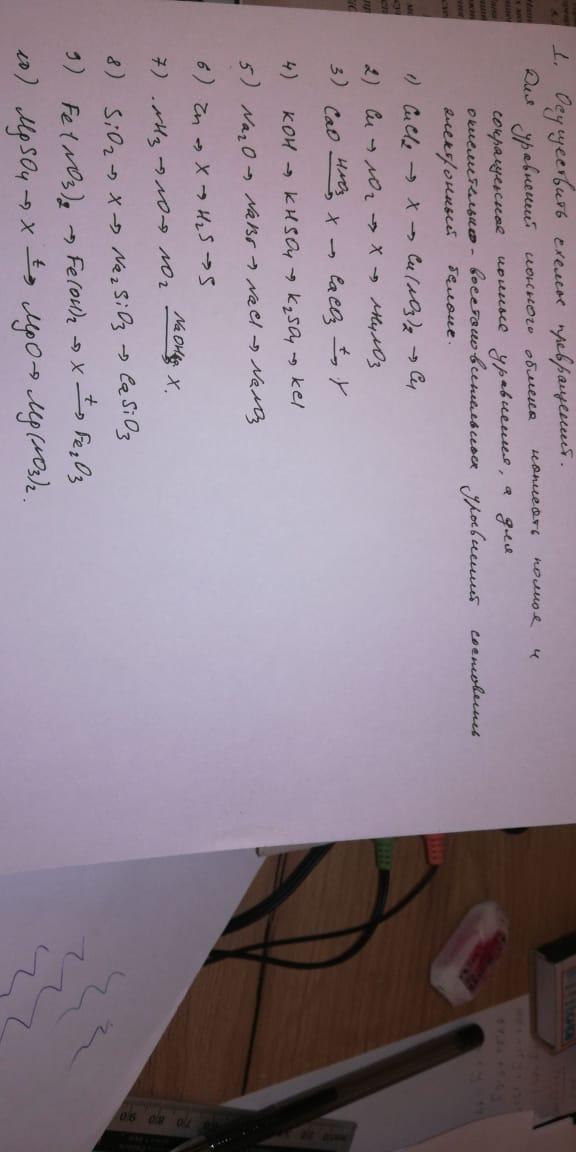 1. Осуществить схемы превращений.
Для уравнений ионного обмена написать полные и
сокращенное ионные уравнения, а для
окислительно-восстановительных уравнений составить
электронный баланс.
1) CuCl₂ → X → Cu(NO₃)₂ → Cu
2) Cu → NO₂ → X → NH₄NO₃
3) CaO —HNO₃→ X → CaCO₃ —t→ Y
4) KOH → KHSO₄ → K₂SO₄ → KCl
5) Na₂O → NaBr → NaCl → NaNO₃
6) Zn → X → H₂S → S
7) NH₃ → NO → NO₂ —NaOH→ X.
8) SiO₂ → X → Na₂SiO₃ → CaSiO₃
9) Fe(NO₃)₂ → Fe(OH)₂ → X —t→ Fe₂O₃
10) MgSO₄ → X —t→ MgO → Mg(NO₃)₂.